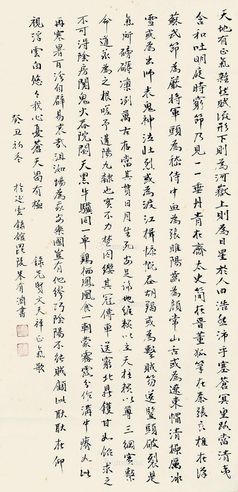 天地有正氣雜然賦流形下則為河嶽上則為日星於人曰浩然沛乎塞蒼冥皇路當清夷
含和吐明庭時窮節乃見一一垂丹青在齊太史簡在晉董狐筆在秦張良椎在漢
蘇武節為嚴將軍頭為嵇侍中血為張睢陽齒為顏常山舌或為遼東帽清操厲冰
雪或為出師表鬼神泣壯烈或為渡江楫慷慨吞胡羯或為擊賊笏逆豎頭破裂是
氣所磅礴凜冽萬古存當其貫日月生死安足論地維賴以立天柱賴以尊三綱實繫
命道義為之根嗟予遘陽九隸也實不力楚囚纓其冠傳車送窮北鼎鑊甘如飴求之
不可得陰房闃鬼火春院閟天黑牛驥同一皁雞棲鳳凰食一朝蒙霧露分作溝中瘠如此
再寒暑百沴自辟易哀哉沮洳場為我安樂國豈有他繆巧陰陽不能賊顧此耿耿在仰
視浮雲白悠悠我心憂蒼天曷有極
錄先賢文天祥正氣歌
癸丑初冬
毘陵朱有濟書